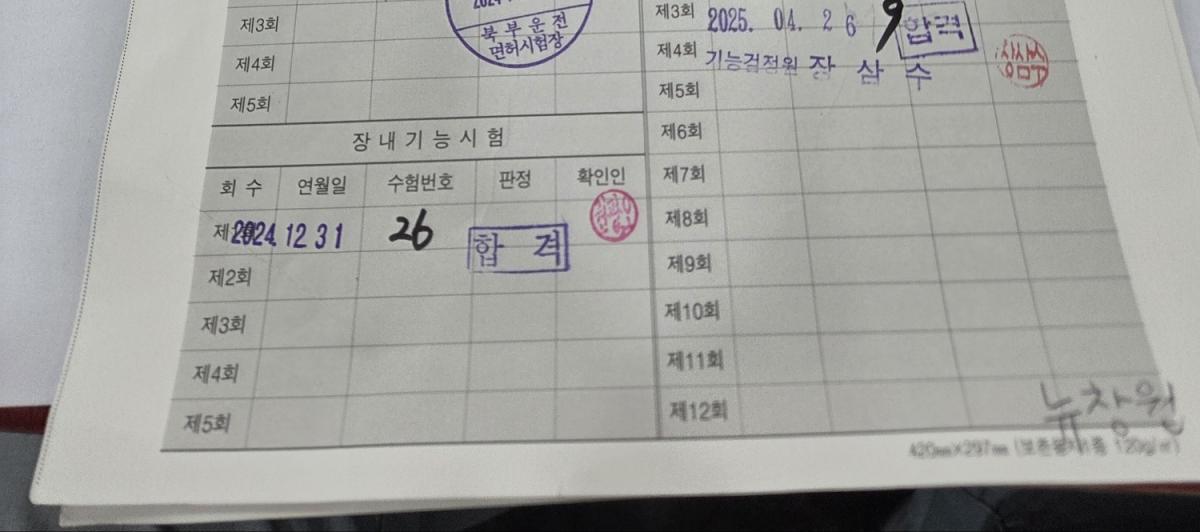 제3회
북부운전
면허시험장
제4회
제5회
장내기능시험
회수 연월일 수험번호 판정 확인인
제 2024. 12 31 26 합격
제2회
제3회
제4회
제5회
제3회 2025. 04. 26 9 합격
제4회 기능검정원 장삼수
제5회
제6회
제7회
제8회
제9회
제10회
제11회
제12회
뉴창원
420㎜×297㎜ 120g/㎡)